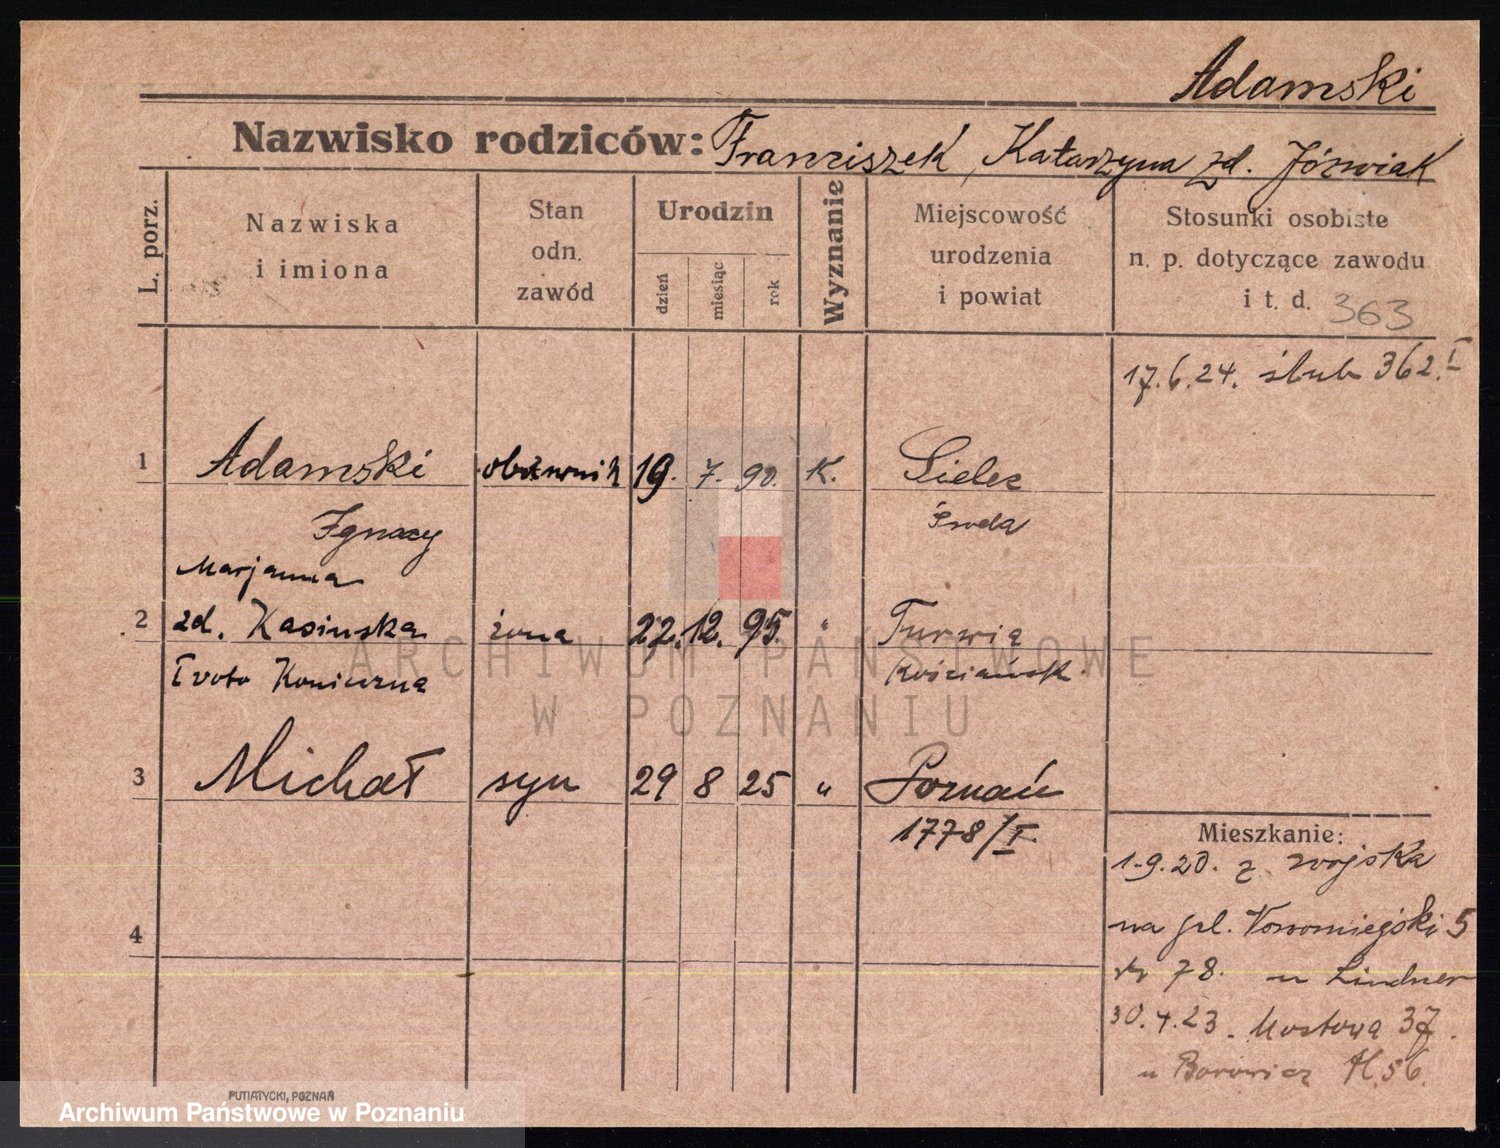 Adamski
Nazwisko rodziców: Franciszek, Katarzyna zd. Jóźwiak
L. porz.
Nazwiska
i imiona
Stan
odn.
zawód
Urodzin
dzień
miesiąc
rok
Wyznanie
Miejscowość
urodzenia
i powiat
Stosunki osobiste
n. p. dotyczące zawodu
i t. d. 363
17.6.24. ślub 362.I
1 Adamski 19. 7. 90. K.
Ignacy Środa
Marjanna
2 zd. Kasińska żona 22. 12. 95. "
I voto Kościańsk
3 Michał syn 29 8 25 " Poznań
1778/I
Mieszkanie:
1.9.20. z wojska
na pl. Nowomiejski 5
78. u Lindner
4
30.4.23. Mostowa 37.
u Borowicz H.56.
ARCHIWUM PAŃSTWOWE
W POZNANIU
PUTIATYCKI, POZNAŃ
Archiwum Państwowe w Poznaniu